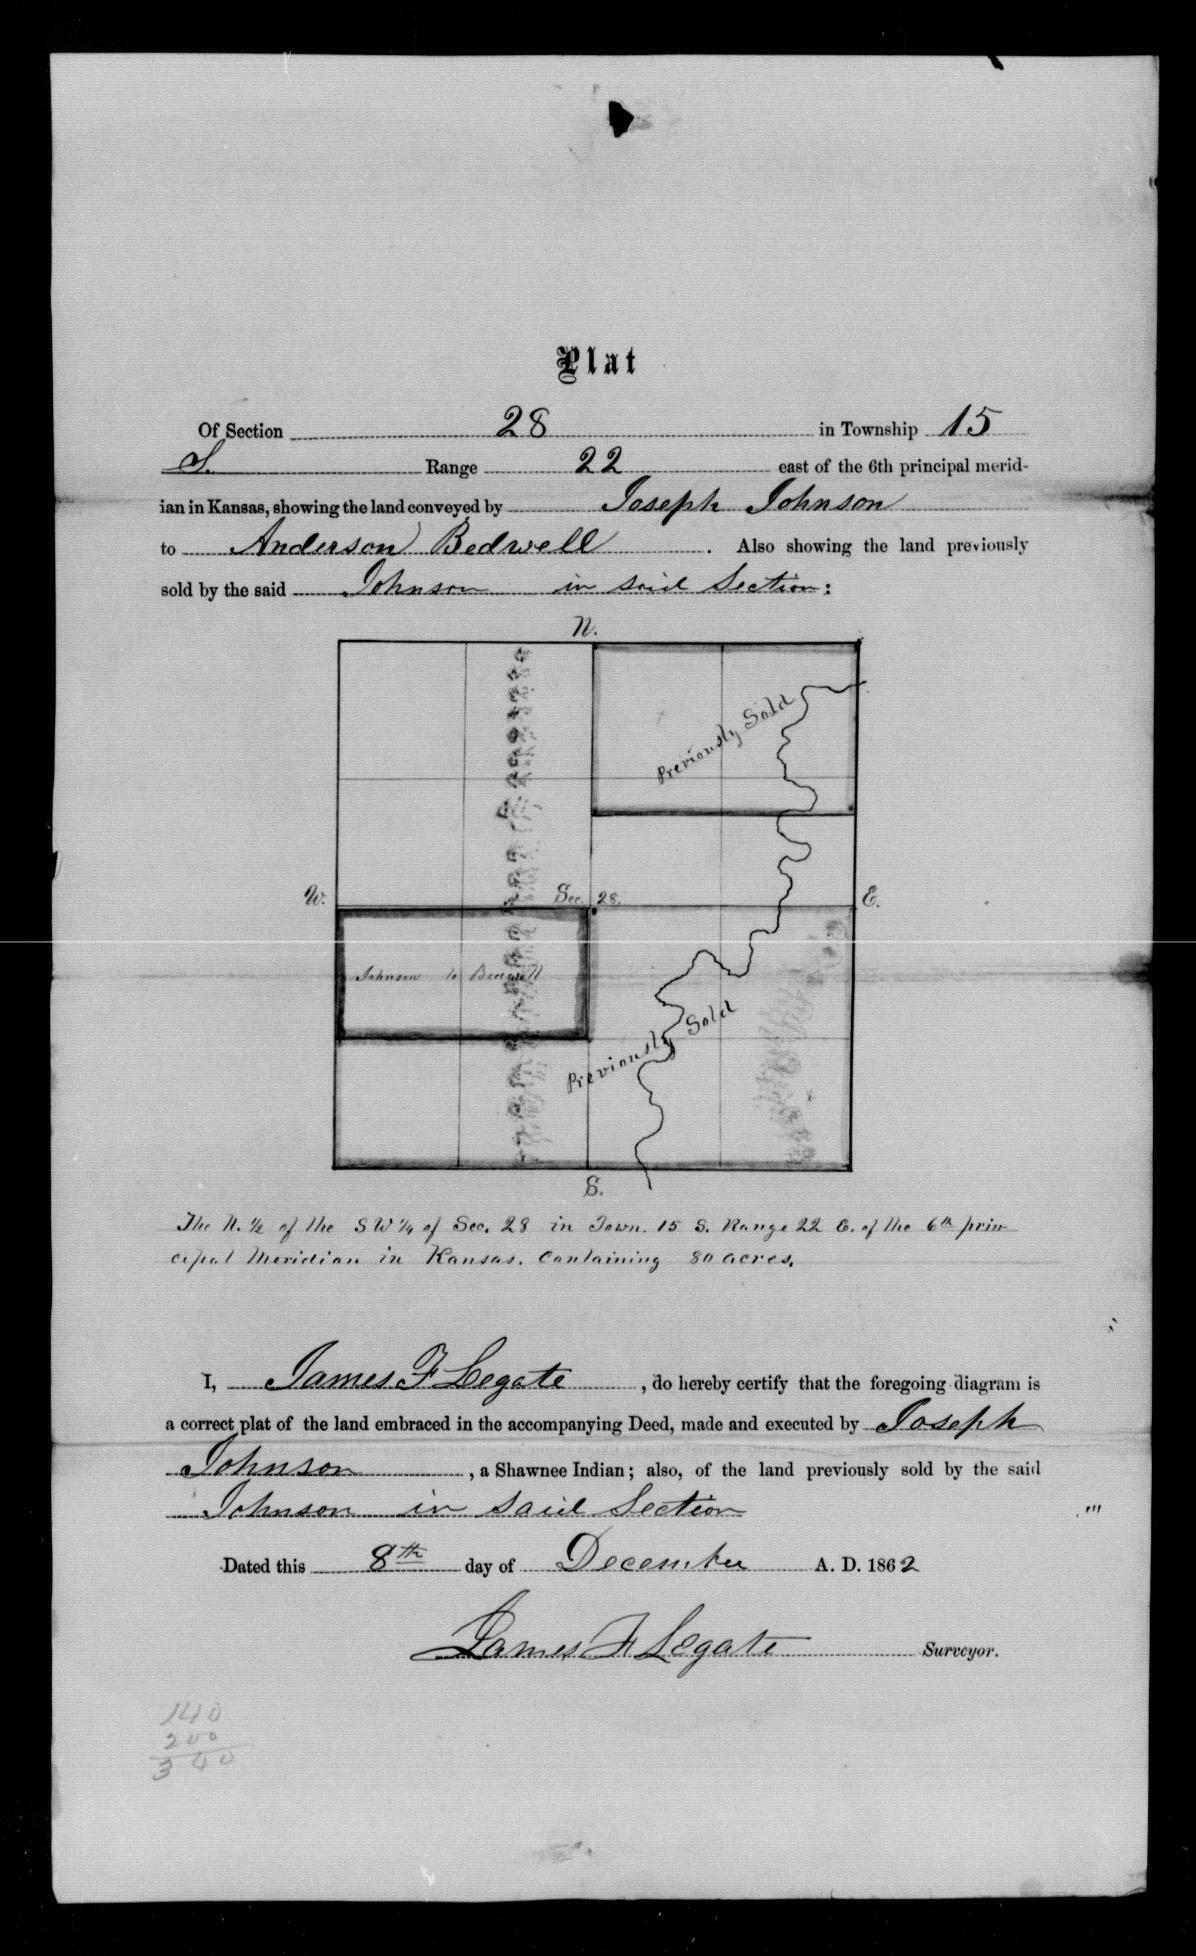 Plat
Of Section 28 in Township 15
S. Range 22 east of the 6th principal merid-
ian in Kansas, showing the land conveyed by Joseph Johnson
to Anderson Bedwell. Also showing the land previously
sold by the said Johnson in said Section:
N.
Previously Sold
W. Sec. 28. E.
Johnson to Bedwell
Previously Sold
S.
The N. ½ of the SW ¼ of Sec. 28 in Town. 15 S. Range 22 E. of the 6th prin
cipal Meridian in Kansas. Containing 80 acres.
I, James F Legate, do hereby certify that the foregoing diagram is
a correct plat of the land embraced in the accompanying Deed, made and executed by Joseph
Johnson, a Shawnee Indian; also, of the land previously sold by the said
Johnson in said Section
Dated this 8th day of December A. D. 1862
James F Legate Surveyor.
140
200
340